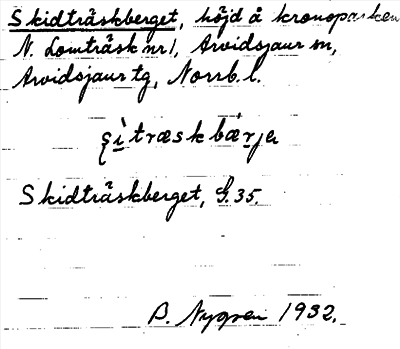 Skidträskberget, höjd å kronoparken
N. Lomträsk nr 1, Arvidsjaur sn,
Arvidsjaur tg, Norrb. l.
Skidträskberget, G. 35.
B. Nygren 1932.